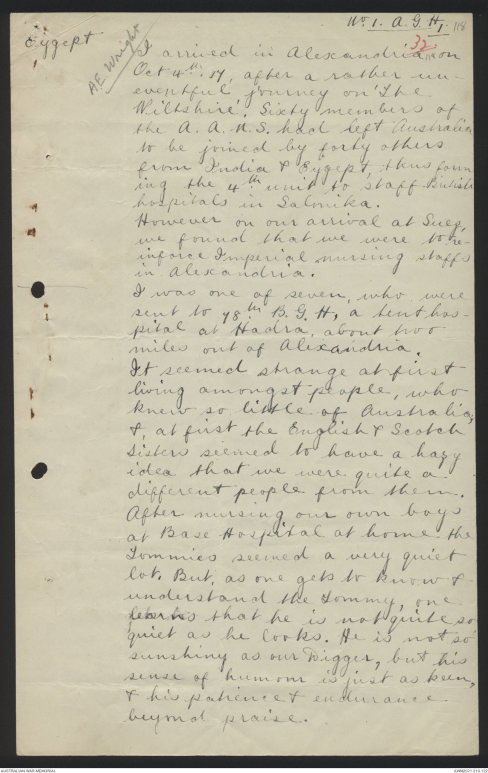 No. 1. A. G. H. 118
Eygept
32
A.E. Wright
I arrived in Alexandria, on
Oct 4th. 17, after a rather un-
eventful journey on 'The
Wiltshire'. Sixty members of
the A. A. N. S. had left Australia
to be joined by forty others
from India & Eygept, thus form
ing the 4th unit to staff British
hospitals in Salonika.
However on our arrival at Suez,
we found that we were to re-
inforce Imperial nursing staffs
in Alexandria.
I was one of seven, who were
sent to 78th B. G. H, a tent hos-
pital at Hadra, about two
miles out of Alexandria.
It seemed strange at first
living amongst people, who
knew so little of Australia,
&, at first the English & Scotch
Sisters seemed to have a hazy
idea that we were quite a
different people from them.
After nursing our own boys
at Base Hospital at home the
Tommies seemed a very quiet
lot. But, as one gets to know &
understand the Tommy, one
learns that he is not quite so
quiet as he looks. He is not so
sunshiny as our Digger, but his
sense of humour is just as keen,
& his patience & endurance
beyond praise.
AUSTRALIAN WAR MEMORIAL